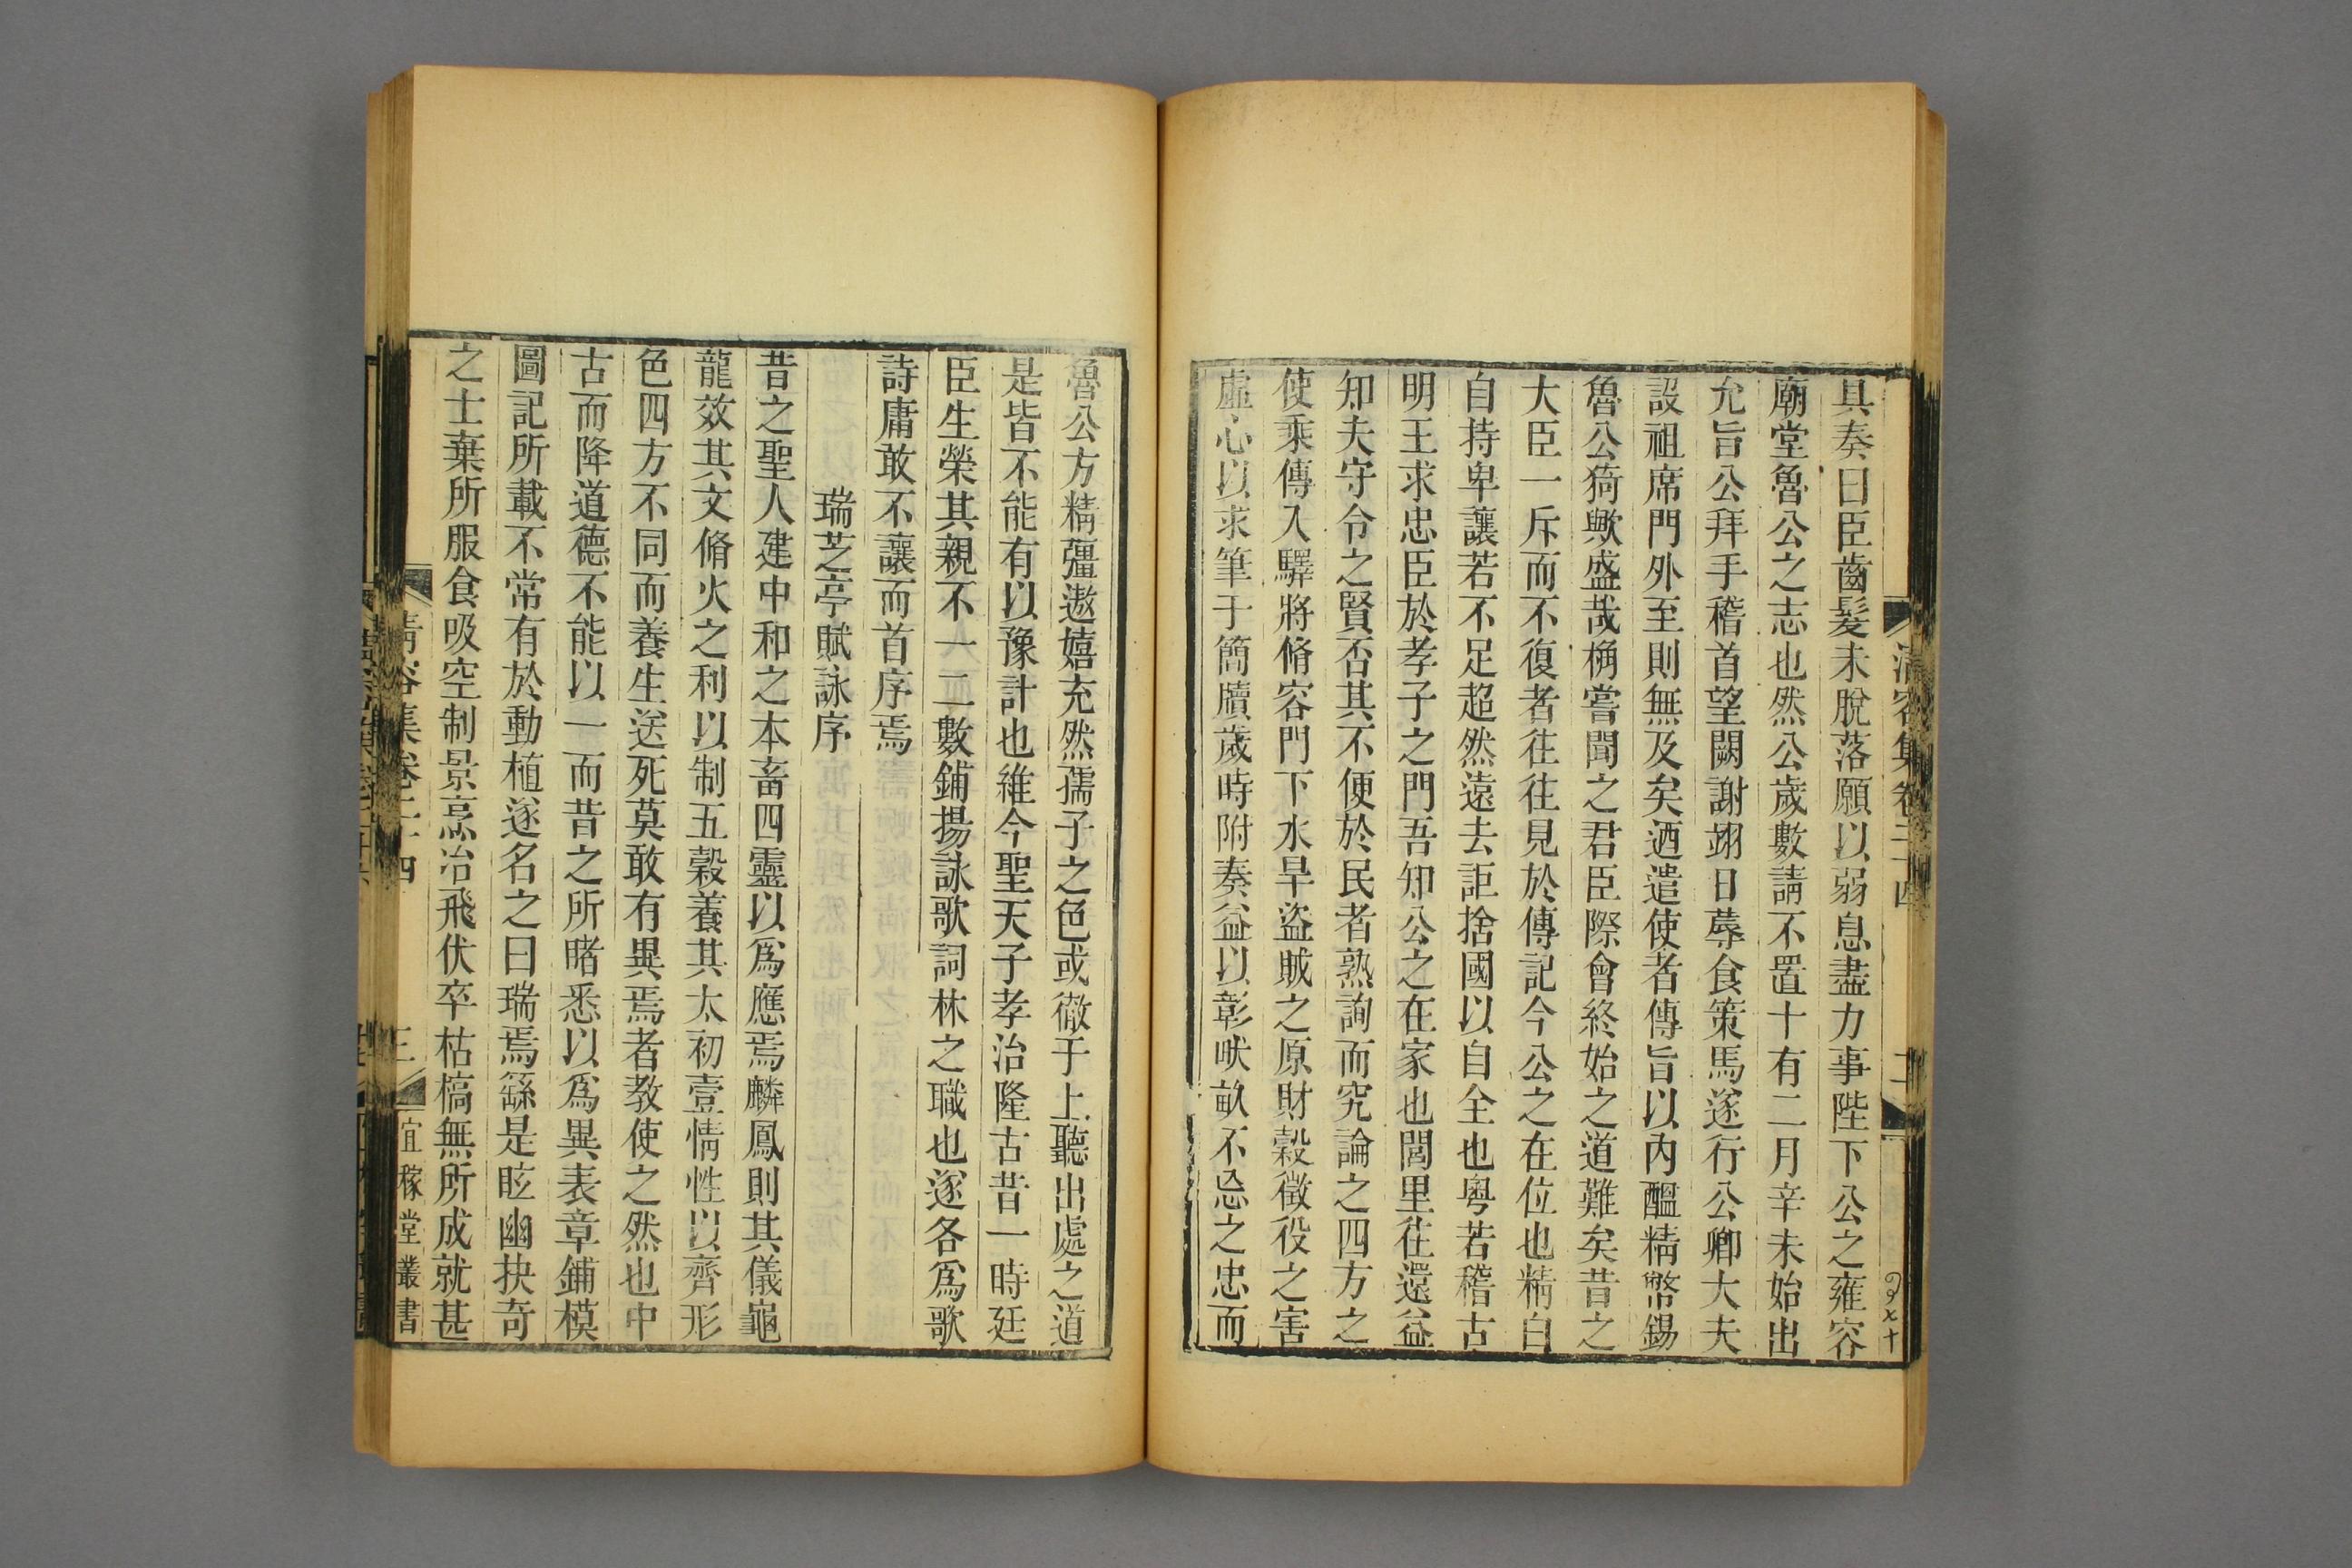 具奏曰臣齒髮未脫落願以弱息盡力事陛下公之雍容
廟堂魯公之志也然公歲數請不置十有二月辛未始出
允旨公拜手稽首望闕謝翊日蓐食策馬遂行公卿大夫
設祖席門外至則無及矣迺遣使者傳旨以內醞精幣錫
魯公猗歟盛哉稱嘗聞之君臣際會終始之道難矣昔之
大臣一斥而不復者往往見於傳記今公之在位也精白
自持卑讓若不足超然遠去詎捨國以自全也粵若稽古
明王求忠臣於孝子之門吾知公之在家也閭里往還益
知夫守令之賢否其不便於民者熟詢而究論之四方之
使乘傳入驛將脩容門下水旱盜賊之原財穀徵役之害
虛心以求筆于簡牘歲時附奏益以彰畎畝不忘之忠而
魯公方精彊遨嬉充然孺子之色或徹于上聽出處之道
是皆不能有以豫計也維今聖天子孝治隆古昔一時廷
臣生榮其親不一二數鋪揚詠歌詞林之職也遂各爲歌
詩庸敢不讓而首序焉
瑞芝亭賦詠序
昔之聖人建中和之本畜四靈以爲應焉麟鳳則其儀龜
龍效其文脩火之利以制五穀養其太初壹情性以齊形
色四方不同而養生送死莫敢有異焉者教使之然也中
古而降道德不能以一而昔之所睹悉以爲異表章鋪模
圖記所載不常有於動植遂名之曰瑞焉繇是眩幽抉奇
之士棄所服食吸空制景烹冶飛伏卒枯槁無所成就甚
清容集卷二十四
三
宜稼堂叢書